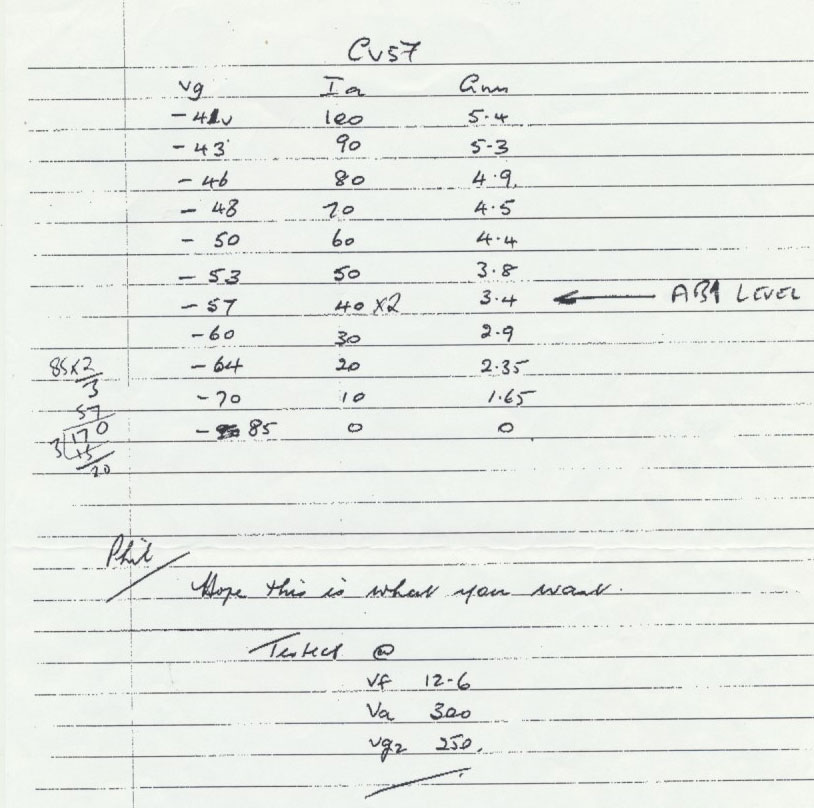 CV57
Vg Ia Gm
-41v 100 5.4
-43 90 5.3
-46 80 4.9
-48 70 4.5
- 50 60 4.4
-53 50 3.8
-57 40 x2 3.4 ← AB1 LEVEL
-60 30 2.9
-64 20 2.35
-70 10 1.65
- 85 0 0
85x2
3
57
3 170
15
20
Phil
Hope this is what you want.
Tested @
Vf 12.6
Va 300
Vg2 250.